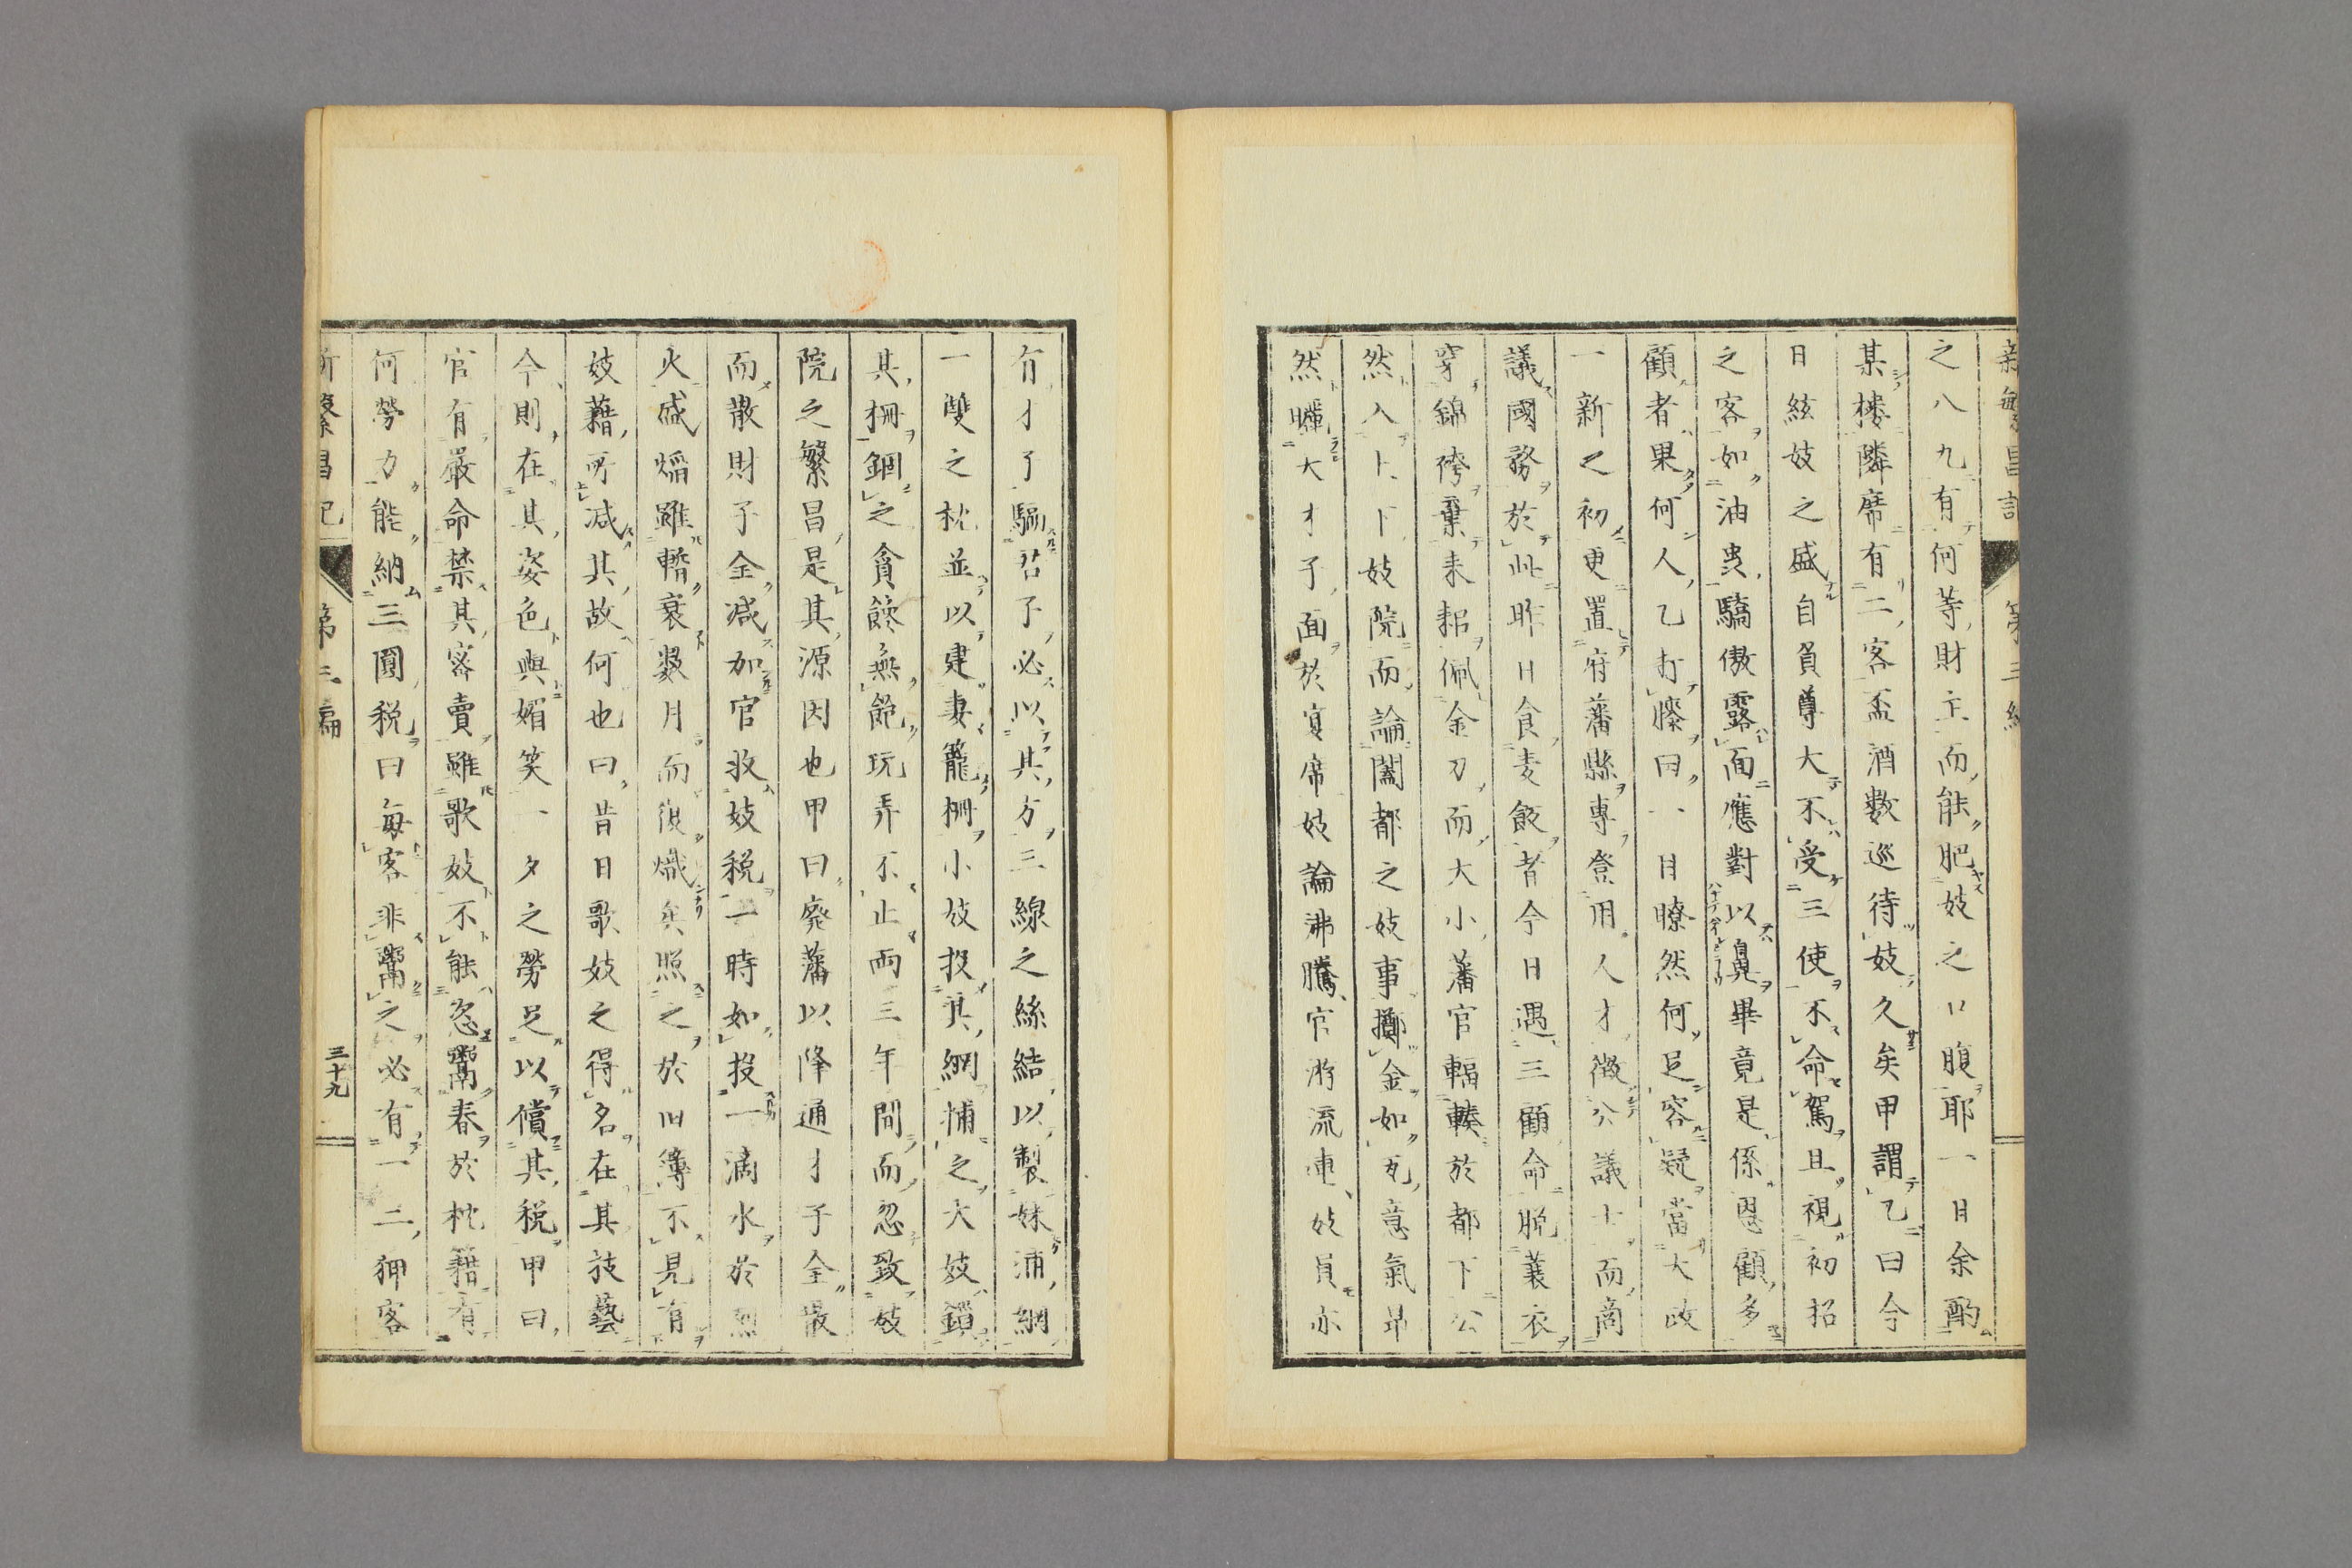 之八九有何等財主而能肥妓之口腹耶一日余酌
某楼隣席有二客盃酒數巡待妓久矣甲謂乙曰今
日絃妓之盛自負尊大不受三使不命駕且視初招
之客如油虫驕傲露面應對以鼻畢竟是係恩顧多
顧者果何人乙打膝曰一目瞭然何足容疑當大政
一新之初更置府藩縣專登用人才徵公議士而商
議國務於此昨日食麦飯者今日遇三顧命脱蓑衣
穿錦袴棄耒耜佩金刀而大小藩官輻輳於都下公
然入上下妓院而論闔都之妓事擲金如瓦意氣昂
然矖大才子面於宴席妓論沸騰官游流連妓員亦
有才子驅君子必以其方三線之絲結以製妹浦網
一雙之枕並以建妻籠柵小妓投其網捕之大妓鎖
其柵錮之貪饞無飽玩弄不止両三年間而忽致妓
院之繁昌是其源因也甲曰廃藩以降通才子全散
而散財子全減加官收妓税一時如投一滴水於烈
火盛熖雖暫衰数月而復熾矣照之於旧簿不見有
妓藉所減其故何也曰昔日歌妓之得名在其技藝
今則在其姿色與媚笑一夕之勞足以償其税甲曰
官有嚴命禁其密賣雖歌妓不能恣鬻春於枕籍有
何勞力能納三圓税曰每客非鬻之必有一二狎客
新繁昌記 第三編 三十九